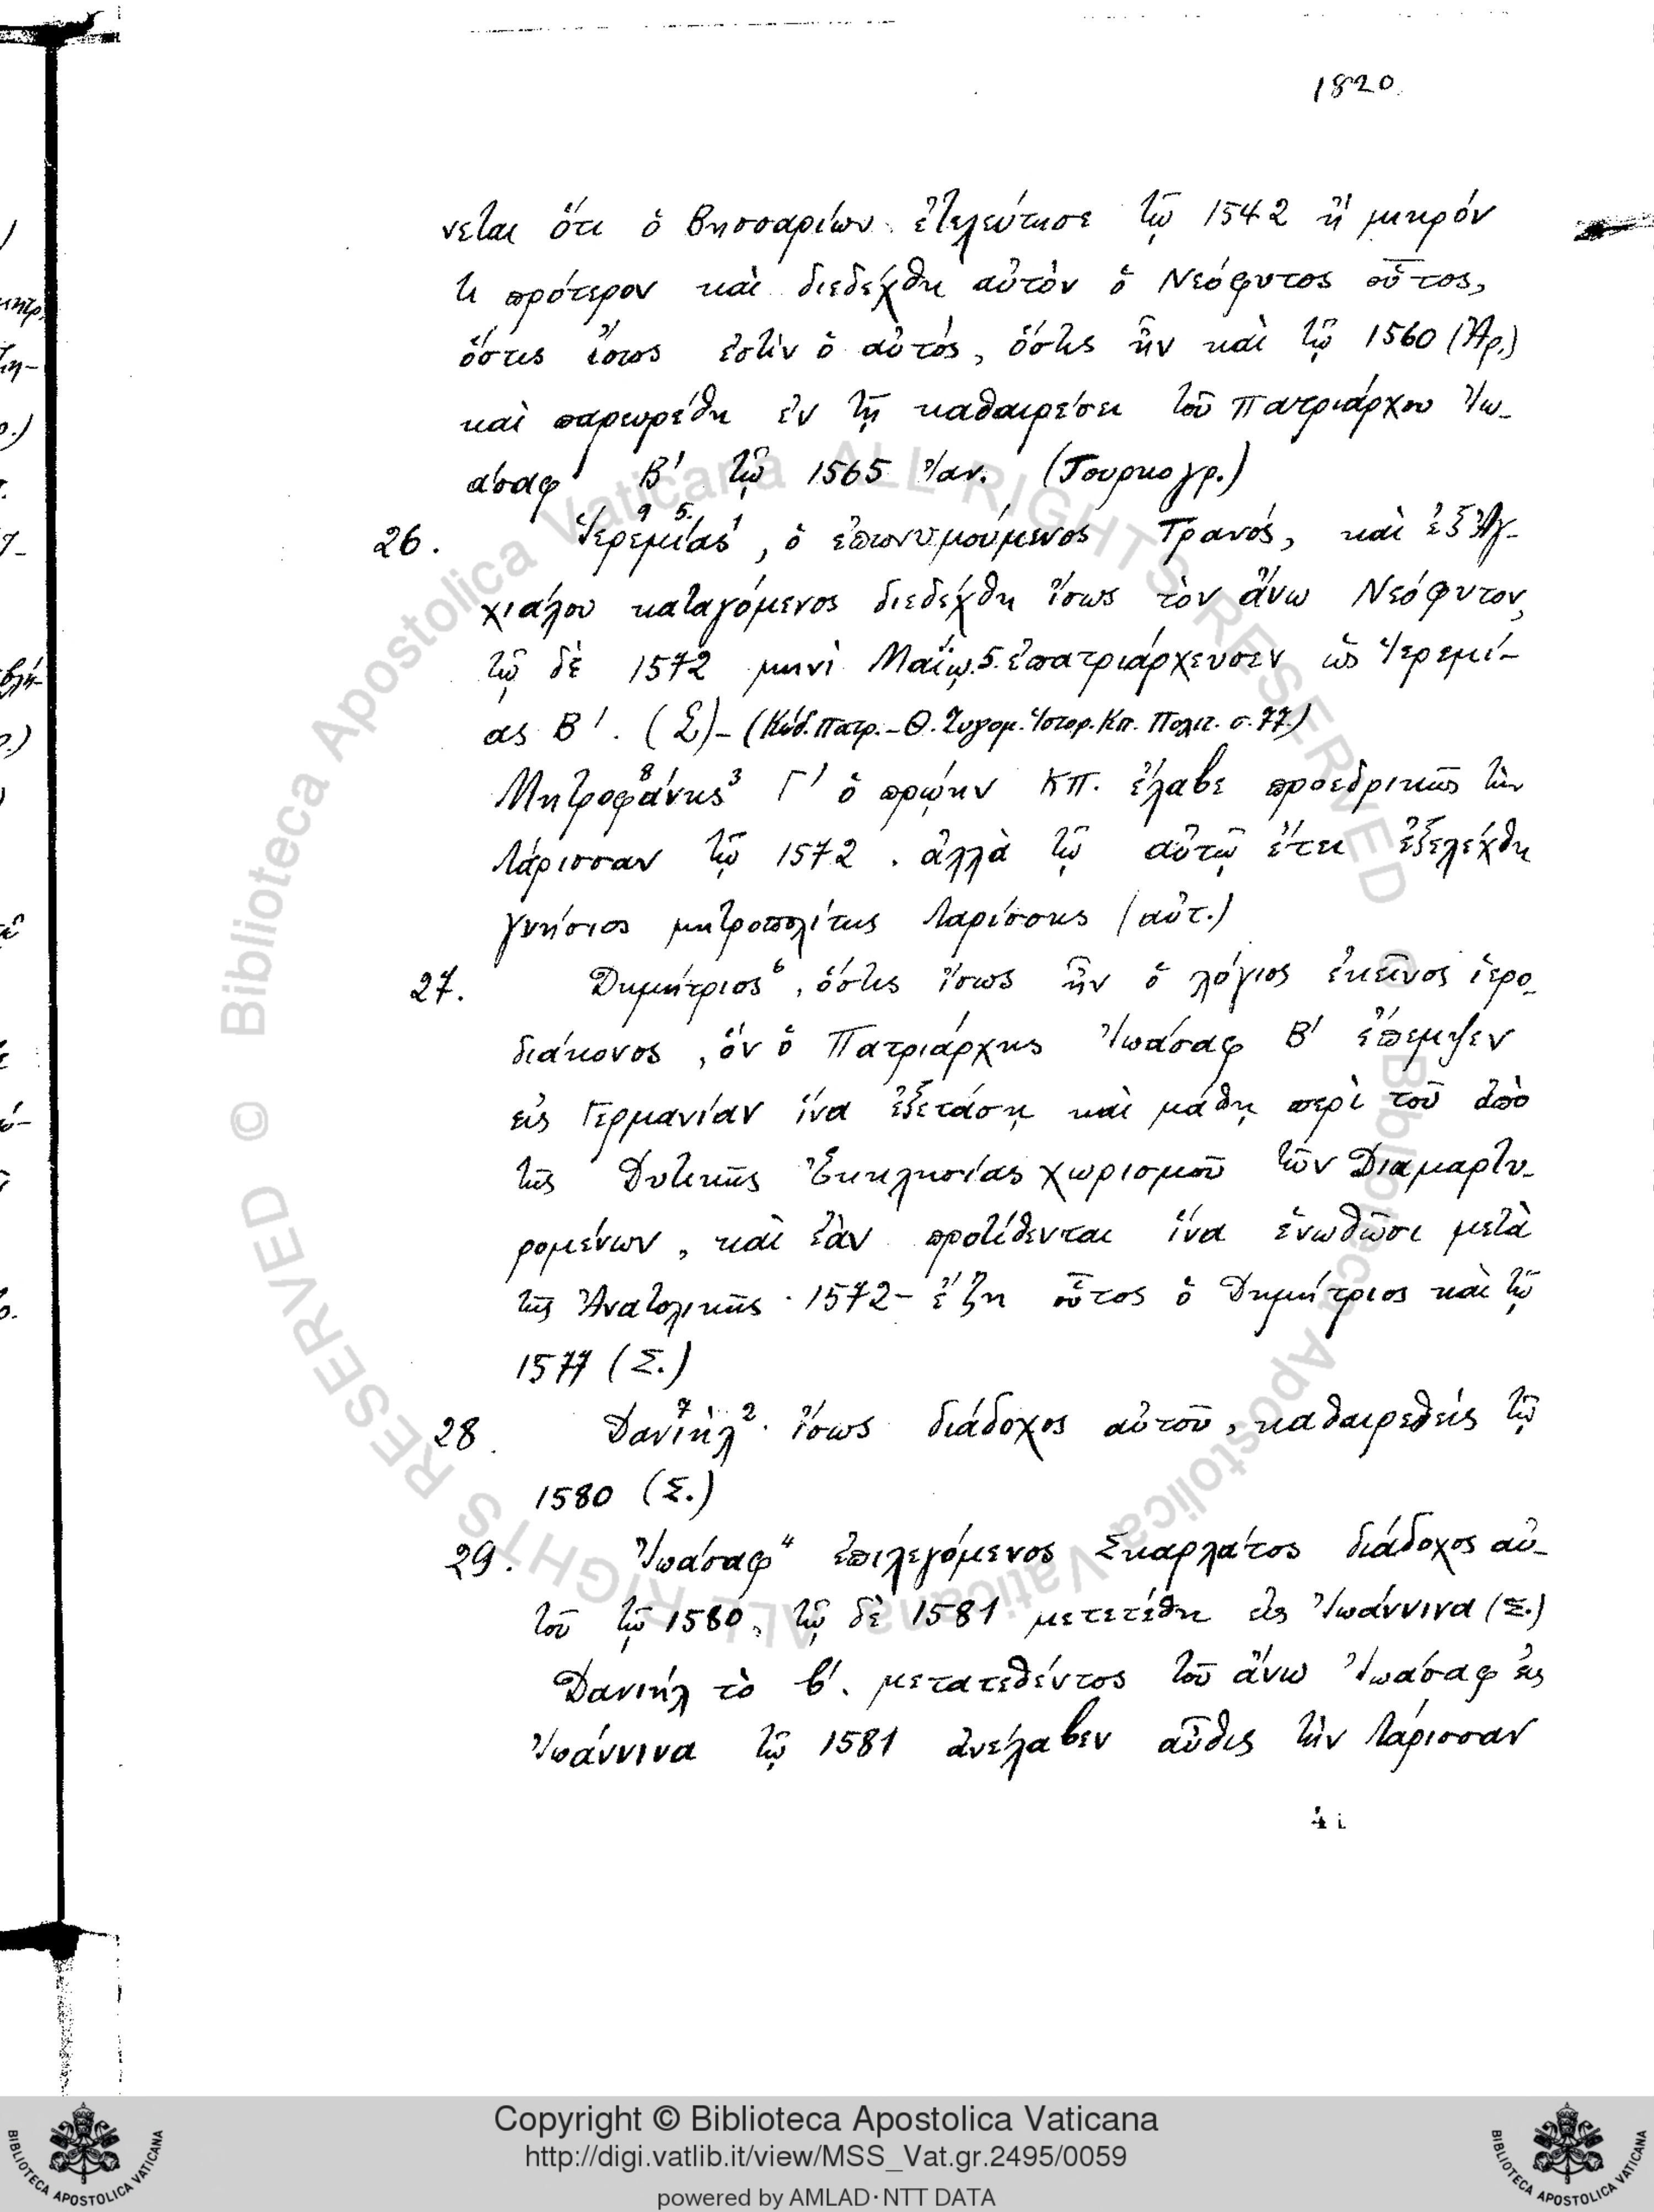 1820
νεται ὅτι ὁ Βησσαρίων ἐτελεύτησε τῷ 1542 ἢ μικρόν
τι πρότερον καὶ διεδέχθη αὐτὸν ὁ Νεόφυτος οὗτος,
ὅστις ἴσως ἐστὶν ὁ αὐτός, ὅστις ἦν καὶ τῷ 1560 (Ἀρ.)
καὶ παρευρέθη ἐν τῇ καθαιρέσει τοῦ Πατριάρχου Ἰω-
άσαφ Β' τῷ 1565 Ἰαν. (Τουρκογρ.)
26. Ἱερεμίας, ὁ ἐπονυμούμενος Τρανός, καὶ ἐξ Ἀγ-
χιάλου καταγόμενος διεδέχθη ἴσως τὸν ἄνω Νεόφυτον,
τῷ δὲ 1572 μηνὶ Μαΐῳ 5. ἐπατριάρχευσεν ὡς Ἱερεμί-
ας Β'. (Σ) - (Κώδ. Πατρ. - Θ. Ζυγομ. Ἱστορ. Κπ. Πολιτ. σ. 77)
Μητροφάνης Γ' ὁ πρώην ΚΠ. ἔλαβε προεδρικῶς τὴν
Λάρισσαν τῷ 1572. ἀλλὰ τῷ αὐτῷ ἔτει ἐξελέχθη
γνήσιος μητροπολίτης Λαρίσσης (αὐτ.)
27. Δημήτριος⁶, ὅστις ἴσως ἦν ὁ λόγιος ἐκεῖνος ἱερο-
διάκονος, ὃν ὁ Πατριάρχης Ἰωάσαφ Β' ἔπεμψεν
εἰς Γερμανίαν ἵνα ἐξετάσῃ καὶ μάθῃ περὶ τοῦ ἀπὸ
τῆς Δυτικῆς Ἐκκλησίας χωρισμοῦ τῶν Διαμαρτυ-
ρομένων, καὶ ἐὰν προτίθενται ἵνα ἑνωθῶσι μετὰ
τῆς Ἀνατολικῆς. 1572 - ἔζη οὗτος ὁ Δημήτριος καὶ τῷ
1577 (Σ.)
28. Δανιήλ². ἴσως διάδοχος αὐτοῦ, καθαιρεθείς τῷ
1580 (Σ.)
29. Ἰωάσαφ⁴ ἐπιλεγόμενος Σκαρλάτος διάδοχος αὐ-
τοῦ τῷ 1580, τῷ δὲ 1581 μετετέθη εἰς Ἰωάννινα (Σ.)
Δανιήλ τὸ β'. μετατεθέντος τοῦ ἄνω Ἰωάσαφ εἰς
Ἰωάννινα τῷ 1581 ἀνέλαβεν αὖθις τὴν Λάρισσαν
© Biblioteca Apostolica Vaticana ALL RIGHTS RESERVED © Biblioteca Apostolica Vaticana ALL RIGHTS RESERVED
Copyright © Biblioteca Apostolica Vaticana
http://digi.vatlib.it/view/MSS_Vat.gr.2495/0059
powered by AMLAD·NTT DATA
BIBLIOTECA APOSTOLICA VATICANA
BIBLIOTECA APOSTOLICA VATICANA